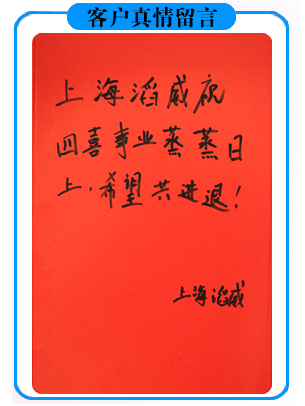 客户真情留言
上海滔威祝
四喜事业蒸蒸日
上，希望共进退！
上海滔威